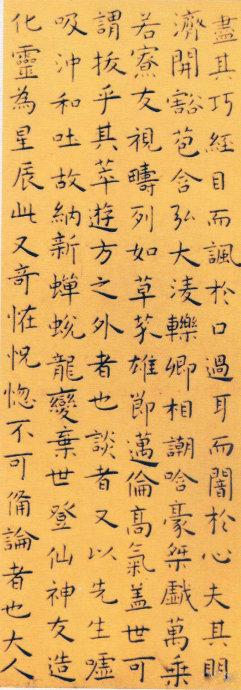 盡其巧經目而諷於口過耳而闇於心夫其明
濟開豁苞含弘大淩轢卿相謿哈豪桀戲萬乘
若寮友視疇列如草芥雄節邁倫高氣盖世可
謂拔乎其萃遊方之外者也談者又以先生噓
吸沖和吐故納新蟬蛻龍變棄世登仙神友造
化靈為星辰此又奇恠怳惚不可俻論者也大人